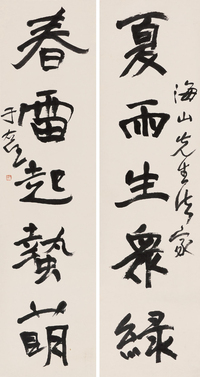 夏雨生衆緑
海山先生法家
春雷起蟄萌
于右任